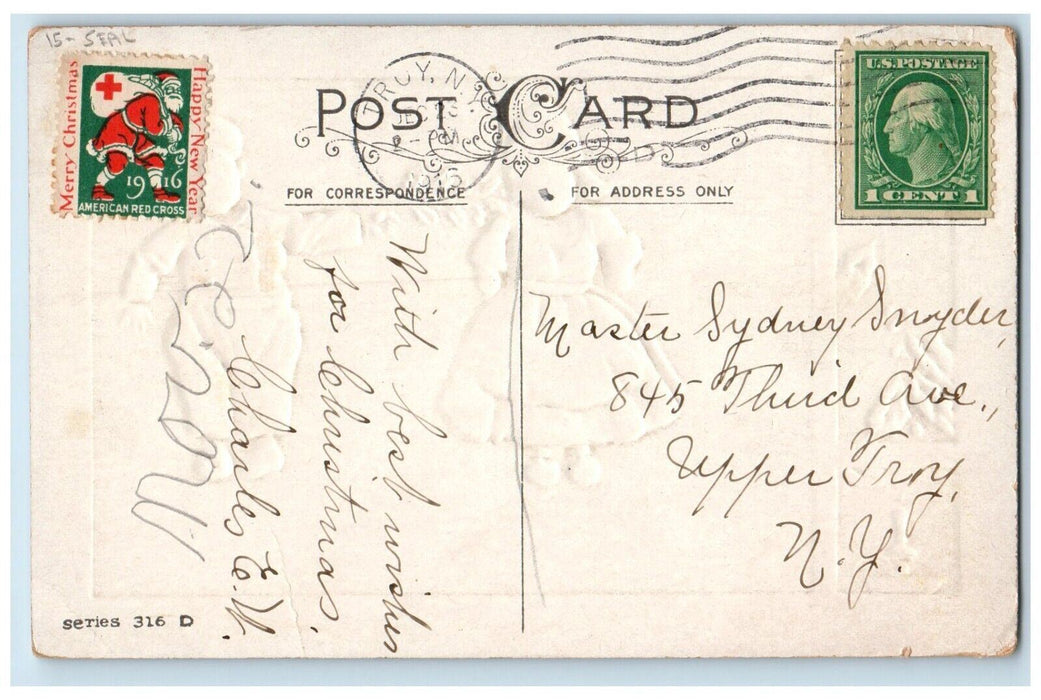 15- SEAL
Merry Christmas
Happy New Year
1916
AMERICAN RED CROSS
TROY, N.Y.
POST CARD
U.S. POSTAGE
1 CENT 1
FOR CORRESPONDENCE
FOR ADDRESS ONLY
With best wishes
for Christmas.
Charles E. W.
Master Sydney Snyder,
845 Third Ave.,
Upper Troy,
N.Y.
series 316 D